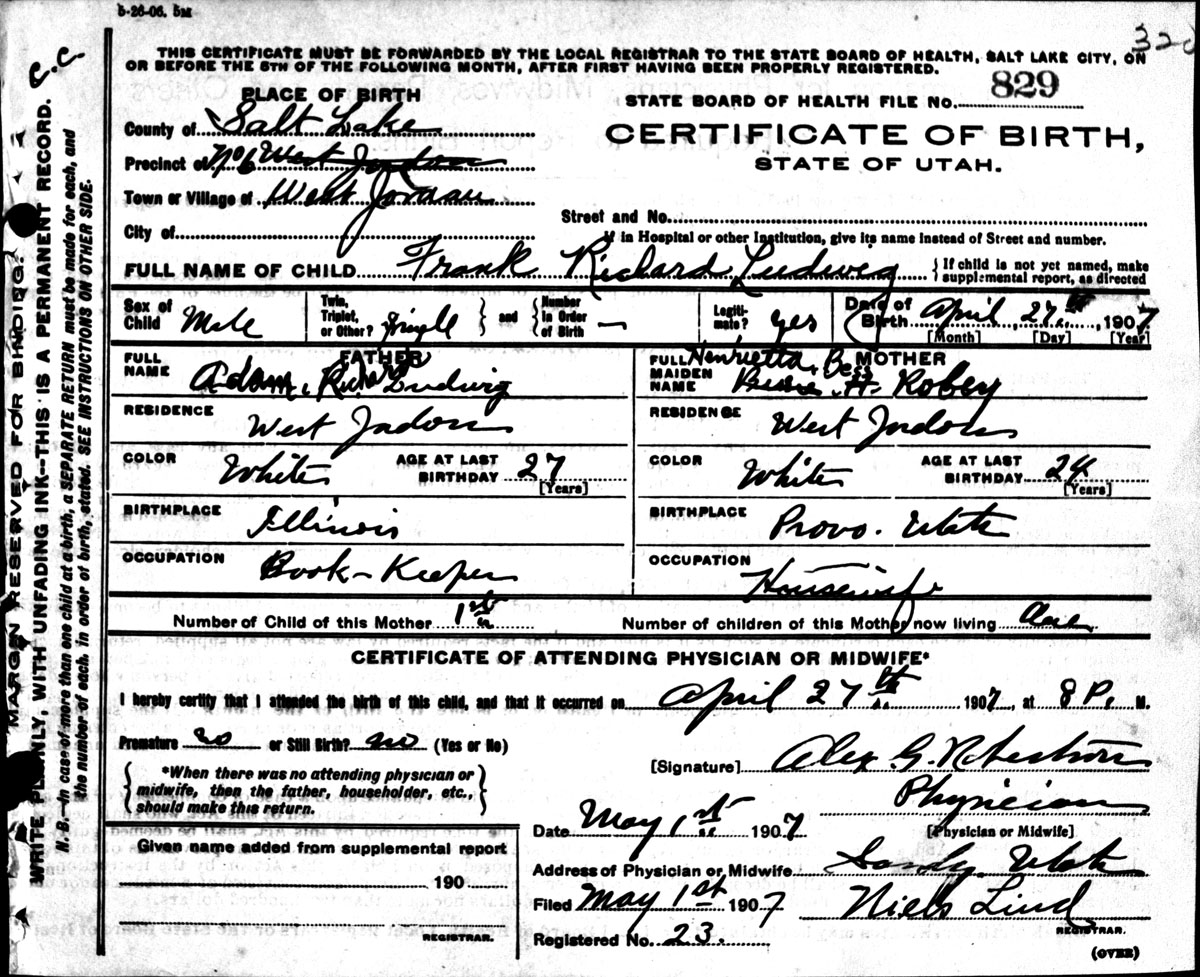 5-26-06. 5M
328
C.C
THIS CERTIFICATE MUST BE FORWARDED BY THE LOCAL REGISTRAR TO THE STATE BOARD OF HEALTH, SALT LAKE CITY, ON
OR BEFORE THE 5TH OF THE FOLLOWING MONTH, AFTER FIRST HAVING BEEN PROPERLY REGISTERED.
PLACE OF BIRTH
STATE BOARD OF HEALTH FILE NO. 829
County of Salt Lake
CERTIFICATE OF BIRTH,
STATE OF UTAH.
Precinct of No 6 West Jordan
Town or Village of West Jordan
Street and No.
City of
If in Hospital or other Institution, give its name instead of Street and number.
FULL NAME OF CHILD Frank Richard Ludwig {If child is not yet named, make supplemental report, as directed
Sex of Child Male
Twin, Triplet, or Other? Single } and { Number in Order of Birth —
Legitimate? yes
Date of Birth April, 27th, 1907
[Month] [Day] [Year]
FATHER
FULL NAME Adam Richard Ludwig
MOTHER
FULL MAIDEN NAME Henrietta Bess H. Robey
RESIDENCE West Jordon
RESIDENCE West Jordon
COLOR White AGE AT LAST BIRTHDAY 27 [Years]
COLOR White AGE AT LAST BIRTHDAY 24 [Years]
BIRTHPLACE Illinois
BIRTHPLACE Provo. Utah
OCCUPATION Book-Keeper
OCCUPATION Housewife
Number of Child of this Mother 1st Number of children of this Mother now living One
CERTIFICATE OF ATTENDING PHYSICIAN OR MIDWIFE*
I hereby certify that I attended the birth of this child, and that it occurred on April 27th 1907, at 8 P. M.
Premature no or Still Birth? no (Yes or No)
[Signature] Alex G. Robertson
{*When there was no attending physician or
midwife, then the father, householder, etc.,
should make this return.}
Physician
[Physician or Midwife]
Date May 1st 1907
Given name added from supplemental report
190
REGISTRAR.
Address of Physician or Midwife Sandy Utah
Filed May 1st 1907 Niels Lind
REGISTRAR.
Registered No. 23.
(OVER)
MARGIN RESERVED FOR BINDING.
WRITE PLAINLY, WITH UNFADING INK--THIS IS A PERMANENT RECORD.
N. B.—In case of more than one child at a birth, a SEPARATE RETURN must be made for each, and
the number of each, in order of birth, stated. SEE INSTRUCTIONS ON OTHER SIDE.